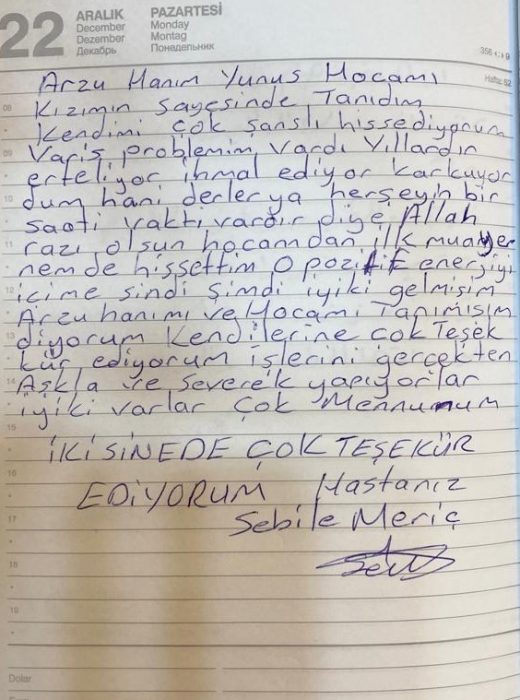 22 ARALIK PAZARTESİ
December Monday
Dezember Montag
Декабрь Понедельник
Hafta: 52
Arzu Hanım Yunus Hocamı
08 Kızımın sayesinde Tanıdım
Kendimi çok şanslı hissediyorum
09 Varis problemim vardı Yıllardır
erteliyor ihmal ediyor karkuyor
10 dum hani derler ya herşeyin bir
saati vakti vardır diye Allah
11 razı olsun hocamdan ilk muayer
nemde hissettim o pozitif enerjiyi
12 içime sindi şimdi iyiki gelmişim
Arzu hanımı ve Hocamı Tanımışım
13 diyorum Kendilerine çok Teşek
kür ediyorum işlerini gerçekten
14 Aşkla ve severek yapıyorlar
iyiki varlar çok Memnunum
15
İKİSİNEDE ÇOK TEŞEKÜR
16
EDİYORUM Hastanız
17 Sebile Meriç
18
19
Dolar